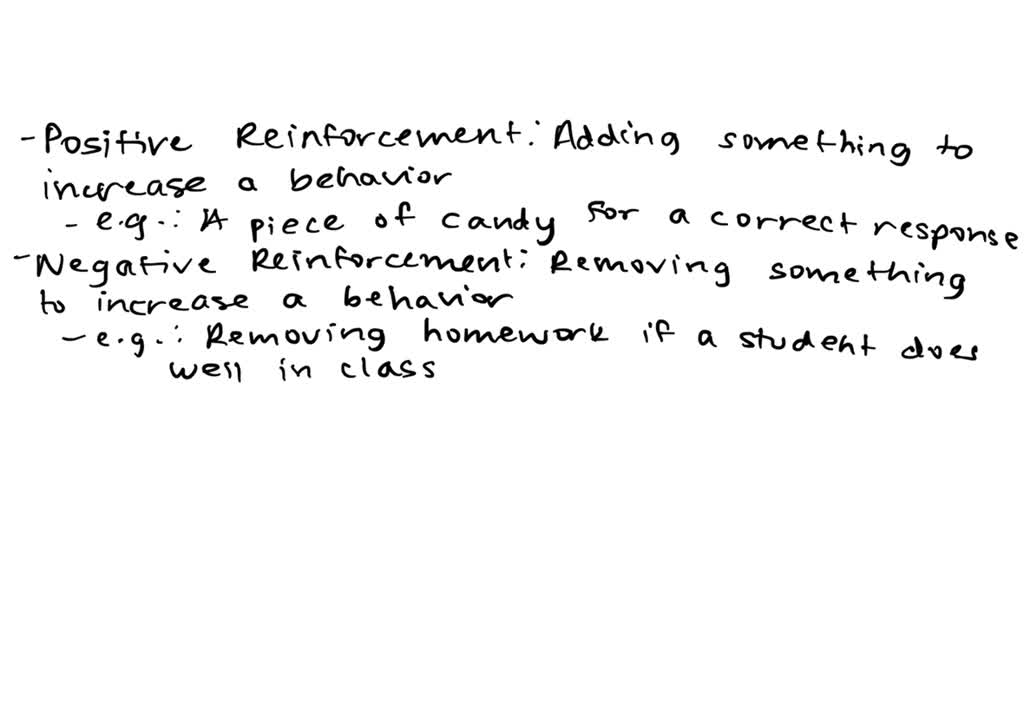 - Positive Reinforcement: Adding something to
increase a behavior
- e.g.: A piece of candy for a correct response
- Negative Reinforcement: Removing something
to increase a behavior
- e.g.: Removing homework if a student does
well in class